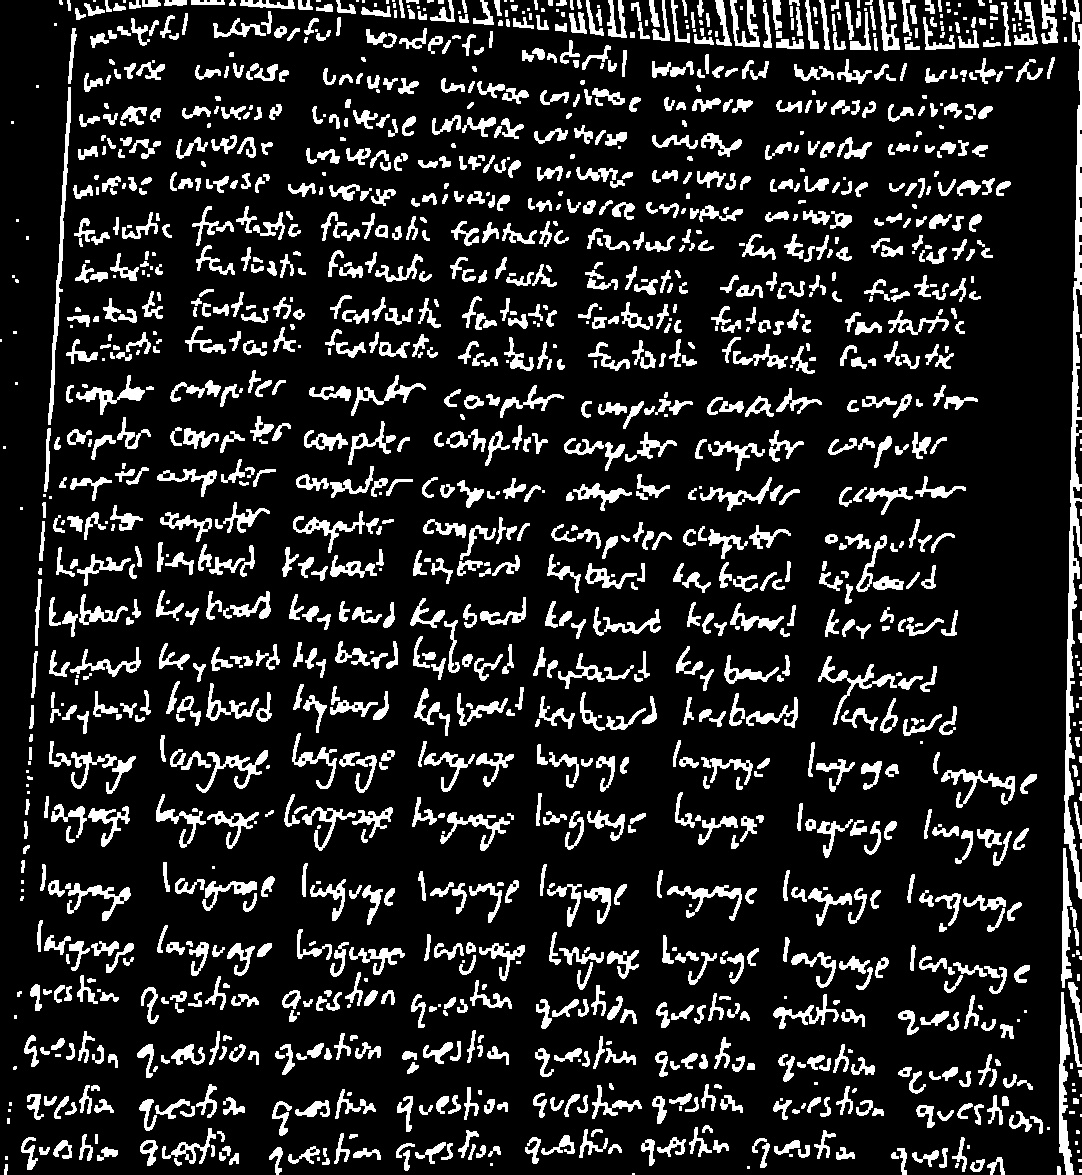 wonderful wonderful wonderful wonderful wonderful wonderful wonderful
universe universe universe universe universe universe universe universe
universe universe universe universe universe universe universe universe
universe universe universe universe universe universe universe universe
universe universe universe universe universe universe universe universe
fantastic fantastic fantastic fantastic fantastic fantastic fantastic
fantastic fantastic fantastic fantastic fantastic fantastic fantastic
fantastic fantastic fantastic fantastic fantastic fantastic fantastic
fantastic fantastic fantastic fantastic fantastic fantastic fantastic
computer computer computer computer computer computer computer
computer computer computer computer computer computer computer
computer computer computer computer computer computer computer
computer computer computer computer computer computer computer
keyboard keyboard keyboard keyboard keyboard keyboard keyboard
keyboard keyboard keyboard keyboard keyboard keyboard keyboard
keyboard keyboard keyboard keyboard keyboard keyboard keyboard
keyboard keyboard keyboard keyboard keyboard keyboard keyboard
language language language language language language language language
language language language language language language language language
language language language language language language language language
language language language language language language language language
question question question question question question question question
question question question question question question question question
question question question question question question question question
question question question question question question question question